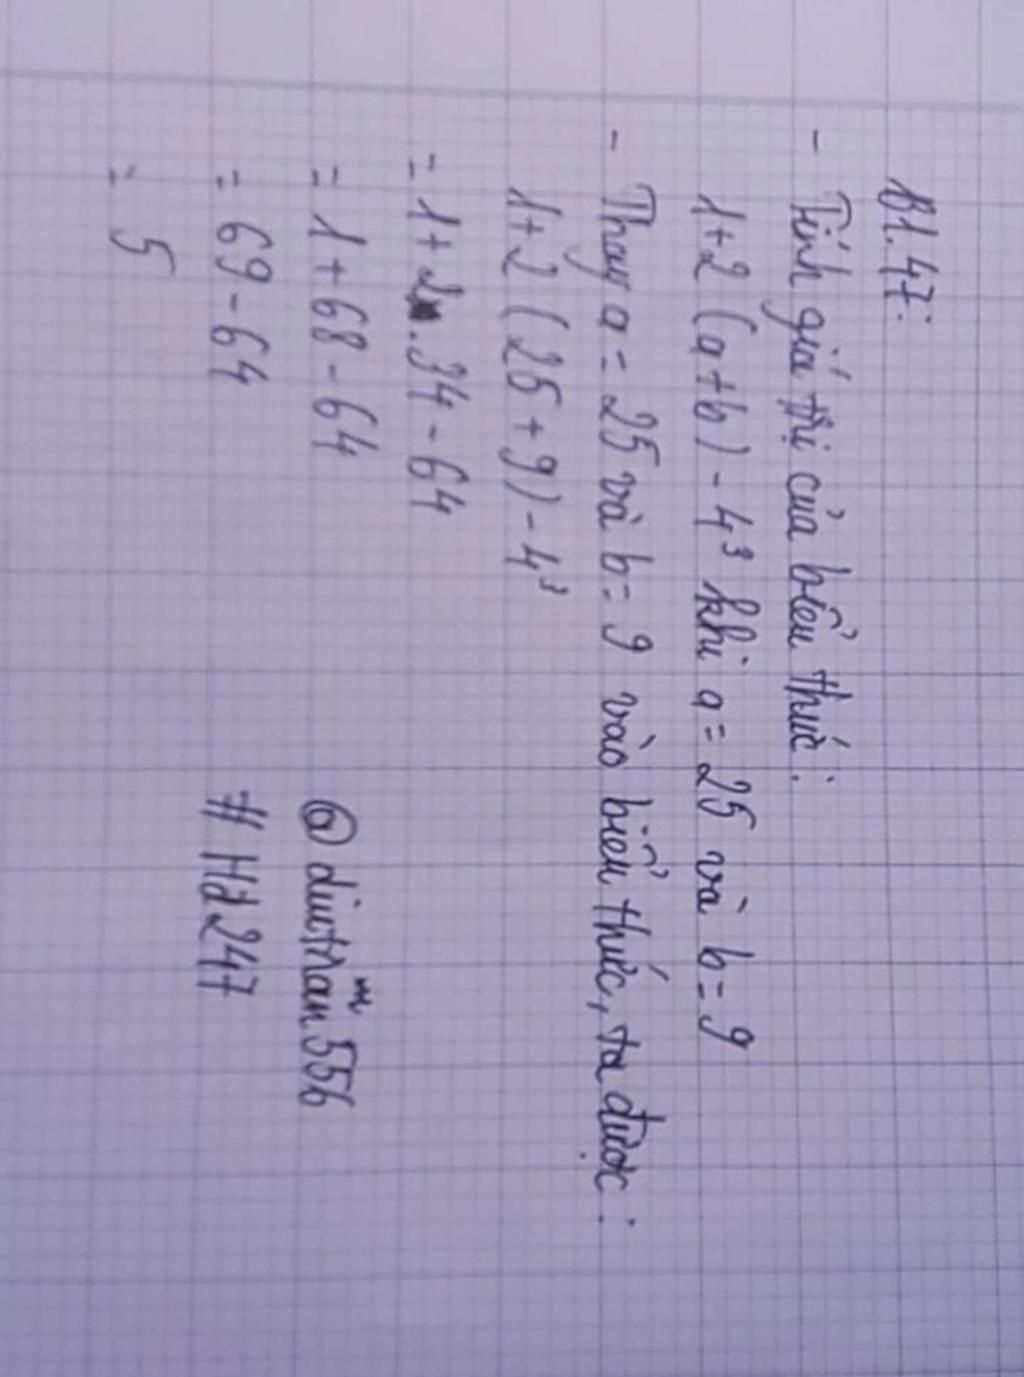 B1.47:
- Tính giá trị của biểu thức:
1+2(a+b)-4³ khi a=25 và b=9
- Thay a=25 và b=9 vào biểu thức, ta được:
1+2(25+9)-4³
=1+2.34-64
=1+68-64
=69-64
=5
#Hd247